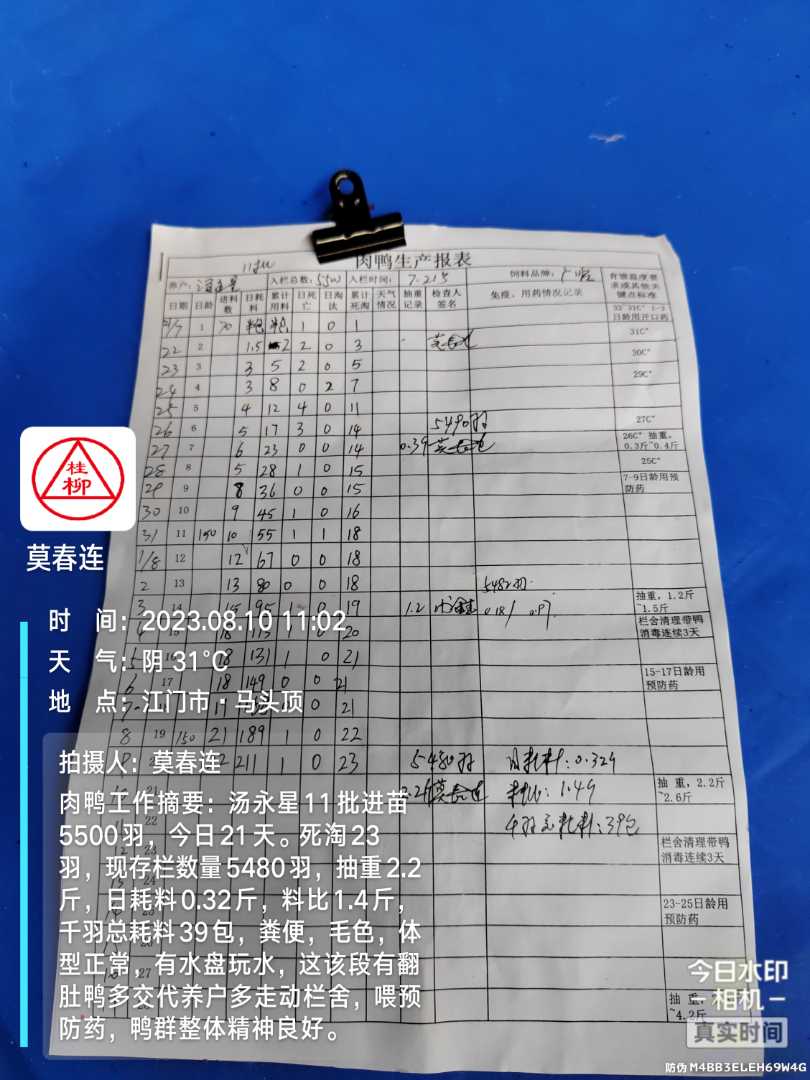 11批
肉鸭生产报表
养户: 汤永星 入栏总数: 5500 入栏时间: 7.21号 饲料品牌:
日期 日龄 进料数 日耗料 累计用料 日死亡 日淘汰 累计死淘 天气情况 抽重记录 检查人签名 免疫、用药情况记录 育雏温度要求或其他关键点标准
21/7 1 70 1 0 1
日龄用开口药
31C°
22 2 1.5 2 2 0 3 莫春连
30C°
23 3 3 5 2 0 5
29C°
24 4 3 8 0 2 7
25 5 4 12 4 0 11
26 6 5 17 3 0 14 5490羽
27C°
27 7 6 23 0 0 14 0.39 莫春连
26C° 抽重,
0.3斤~0.4斤
28 8 5 28 1 0 15
25C°
29 9 8 36 0 0 15
7-9日龄用预防药
30 10 9 45 1 0 16
31 11 150 10 55 1 1 18
1/8 12 12 67 0 0 18
2 13 13 80 0 0 18 5482羽
3 14 15 95 1 0 19 1.2
抽重, 1.2斤
~1.5斤
4 15 18 113 1 0 20
栏舍清理带鸭消毒连续3天
5 16 18 131 1 0 21
6 17 18 149 0 0 21
15-17日龄用预防药
7 0 21
8 19 150 21 189 1 0 22
9 2 211 1 0 23 5480羽 日耗料: 0.32斤
莫春连 料比: 1.4斤
抽重, 2.2斤
~2.6斤
千羽总耗料: 39包
栏舍清理带鸭消毒连续3天
23-25日龄用预防药
27
抽重,
~4.2斤
桂柳
莫春连
时 间: 2023.08.10 11:02
天 气: 阴 31℃
地 点: 江门市·马头顶
拍摄人: 莫春连
肉鸭工作摘要: 汤永星11批进苗
5500羽，今日21天。死淘23
羽，现存栏数量5480羽，抽重2.2
斤，日耗料0.32斤，料比1.4斤，
千羽总耗料39包，粪便，毛色，体
型正常，有水盘玩水，这该段有翻
肚鸭多交代养户多走动栏舍，喂预
防药，鸭群整体精神良好。
今日水印
相机
真实时间
防伪 M4BB3ELEH69W4G